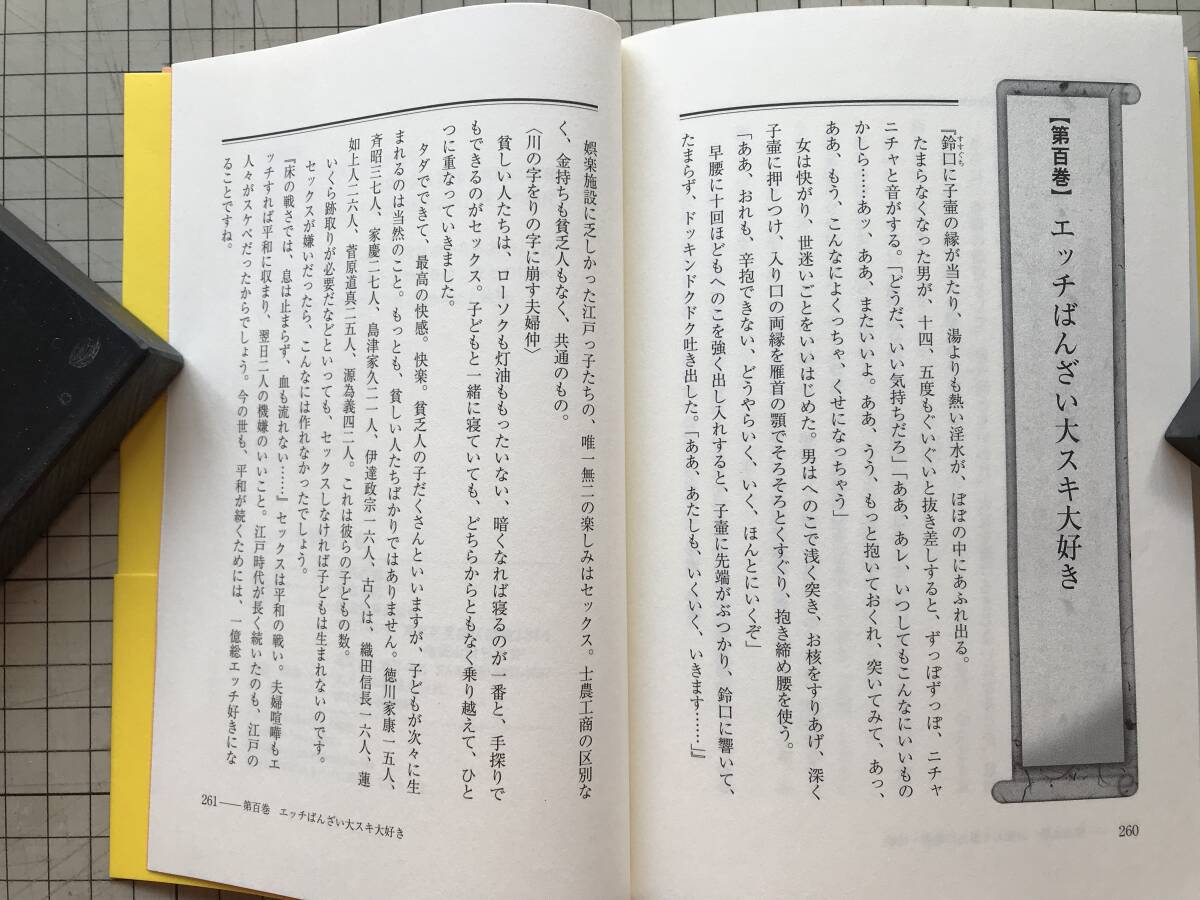 【第百巻】 エッチばんざい大スキ大好き
『鈴口に子壷の縁が当たり、湯よりも熱い淫水が、ぼぼの中にあふれ出る。
すすぐち
たまらなくなった男が、十四、五度もぐいぐいと抜き差しすると、ずっぽずっぽ、ニチャ
ニチャと音がする。「どうだ、いい気持ちだろ」「ああ、あレ、いつしてもこんなにいいもの
かしら……あッ、ああ、またいいよ。ああ、うう、もっと抱いておくれ、突いてみて、あっ、
ああ、もう、こんなによくっちゃ、くせになっちゃう」
女は快がり、世迷いごとをいいはじめた。男はへのこで浅く突き、お核をすりあげ、深く
子壷に押しつけ、入り口の両縁を雁首の顎でそろそろとくすぐり、抱き締め腰を使う。
「ああ、おれも、辛抱できない、どうやらいく、いく、ほんとにいくぞ」
早腰に十回ほどもへのこを強く出し入れすると、子壷に先端がぶつかり、鈴口に響いて、
たまらず、ドッキンドクドク吐き出した。「ああ、あたしも、いくいく、いきます……」』
260
娯楽施設に乏しかった江戸っ子たちの、唯一無二の楽しみはセックス。士農工商の区別な
く、金持ちも貧乏人もなく、共通のもの。
〈川の字をりの字に崩す夫婦仲〉
貧しい人たちは、ローソクも灯油ももったいない、暗くなれば寝るのが一番と、手探りで
もできるのがセックス。子どもと一緒に寝ていても、どちらからともなく乗り越えて、ひと
つに重なっていきました。
タダでできて、最高の快感。快楽。貧乏人の子だくさんといいますが、子どもが次々に生
まれるのは当然のこと。もっとも、貧しい人たちばかりではありません。徳川家康一五人、
斉昭三七人、家慶二七人、島津家久二一人、伊達政宗一六人、古くは、織田信長一六人、蓮
如上人二六人、菅原道真二五人、源為義四二人。これは彼らの子どもの数。
いくら跡取りが必要だなどといっても、セックスしなければ子どもは生まれないのです。
セックスが嫌いだったら、こんなには作れなかったでしょう。
『床の戦さでは、息は止まらず、血も流れない……』セックスは平和の戦い。夫婦喧嘩もエ
ッチすれば平和に収まり、翌日二人の機嫌のいいこと。江戸時代が長く続いたのも、江戸の
人々がスケベだったからでしょう。今の世も、平和が続くためには、一億総エッチ好きにな
ることですね。
261――第百巻 エッチばんざい大スキ大好き